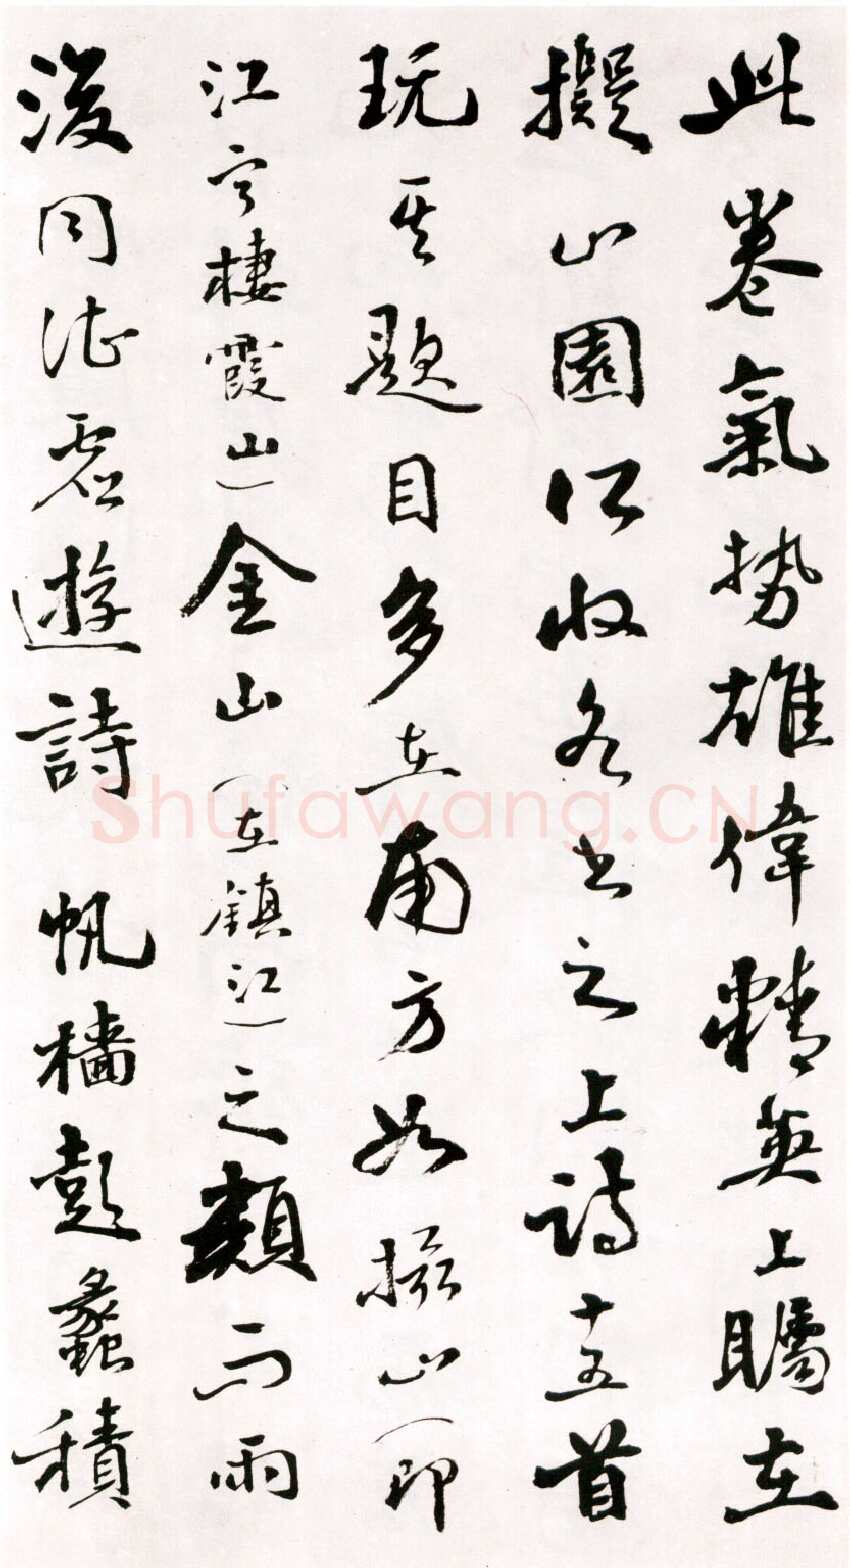 此卷氣势雄偉精英上矚在
擬山園所收各书之上詩十五首
玩其題目多在南方如攝山(即
江寧棲霞山)金山(在鎮江)之類而雨
後同遊詩 帆檣彭蠡積
Shufawang.CN